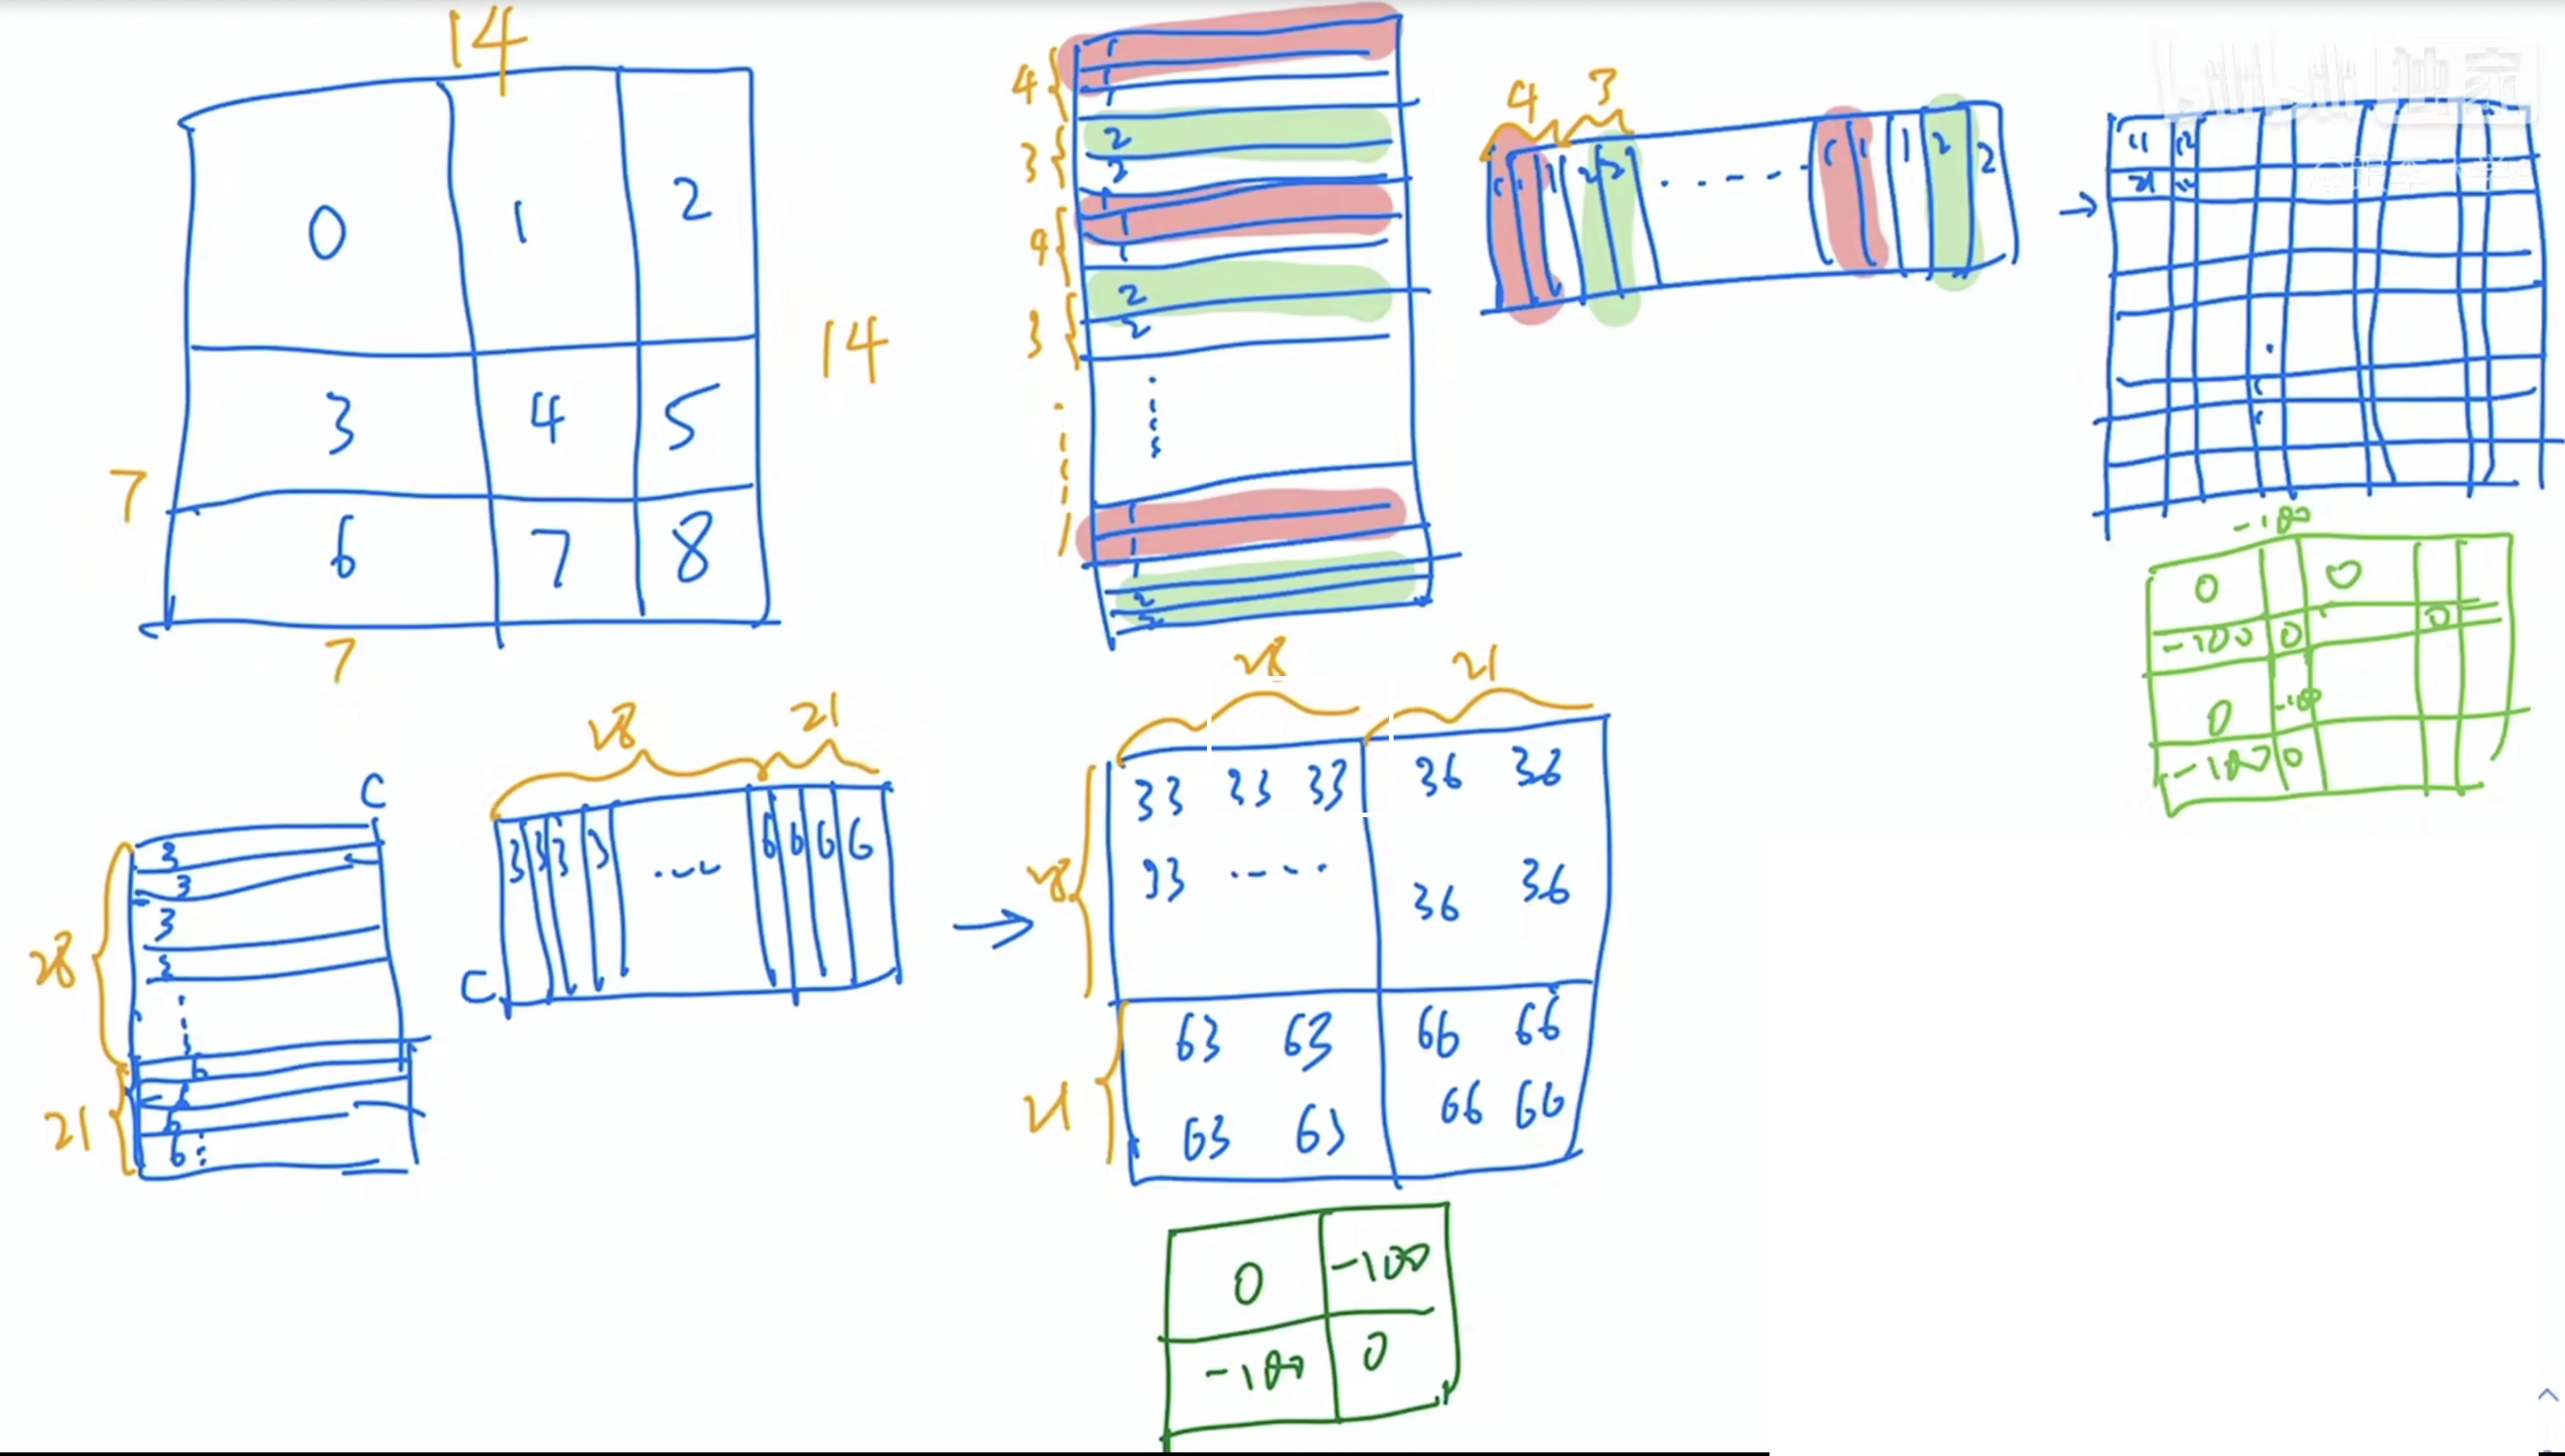 14
0 1 2
14
3 4 5
7
6 7 8
7
4
1
1
1
3
2
2
4
1
1
1
3
2
2
1
1
1
2
2
4 3
1 1 1 2 2 ..... 1 1 1 2 2
→
11 12
21
-100
0 0
-100 0 0
0 -100
-100 0
C
28
3
3
3
21
6
6
6
28 21
3 3 3 3 ... 6 6 6 6
C
→
28 21
28
33 33 33 36 36
33 .... 36 36
21
63 63 66 66
63 63 66 66
0 -100
-100 0